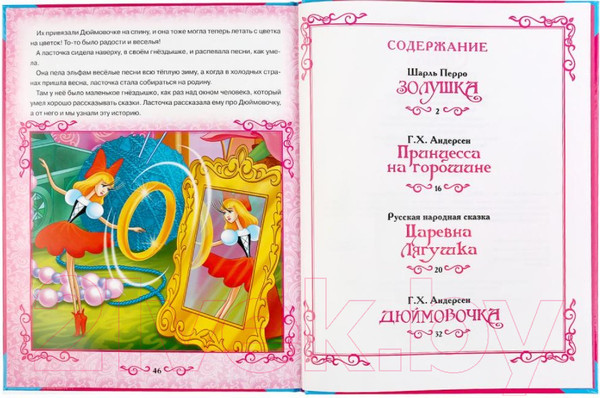 Их привязали Дюймовочке на спину, и она тоже могла теперь летать с цветка
на цветок! То-то было радости и веселья!
А ласточка сидела наверху, в своём гнёздышке, и распевала песни, как уме-
ла.
Она пела эльфам весёлые песни всю тёплую зиму, а когда в холодных стра-
нах пришла весна, ласточка стала собираться на родину.
Там у неё было маленькое гнёздышко, как раз над окном человека, который
умел хорошо рассказывать сказки. Ласточка рассказала ему про Дюймовочку,
а от него и мы узнали эту историю.
46
СОДЕРЖАНИЕ
Шарль Перро
ЗОЛУШКА
2
Г.Х. Андерсен
Принцесса
на горошине
16
Русская народная сказка
Царевна
Лягушка
20
Г.Х. Андерсен
ДЮЙМОВОЧКА
32